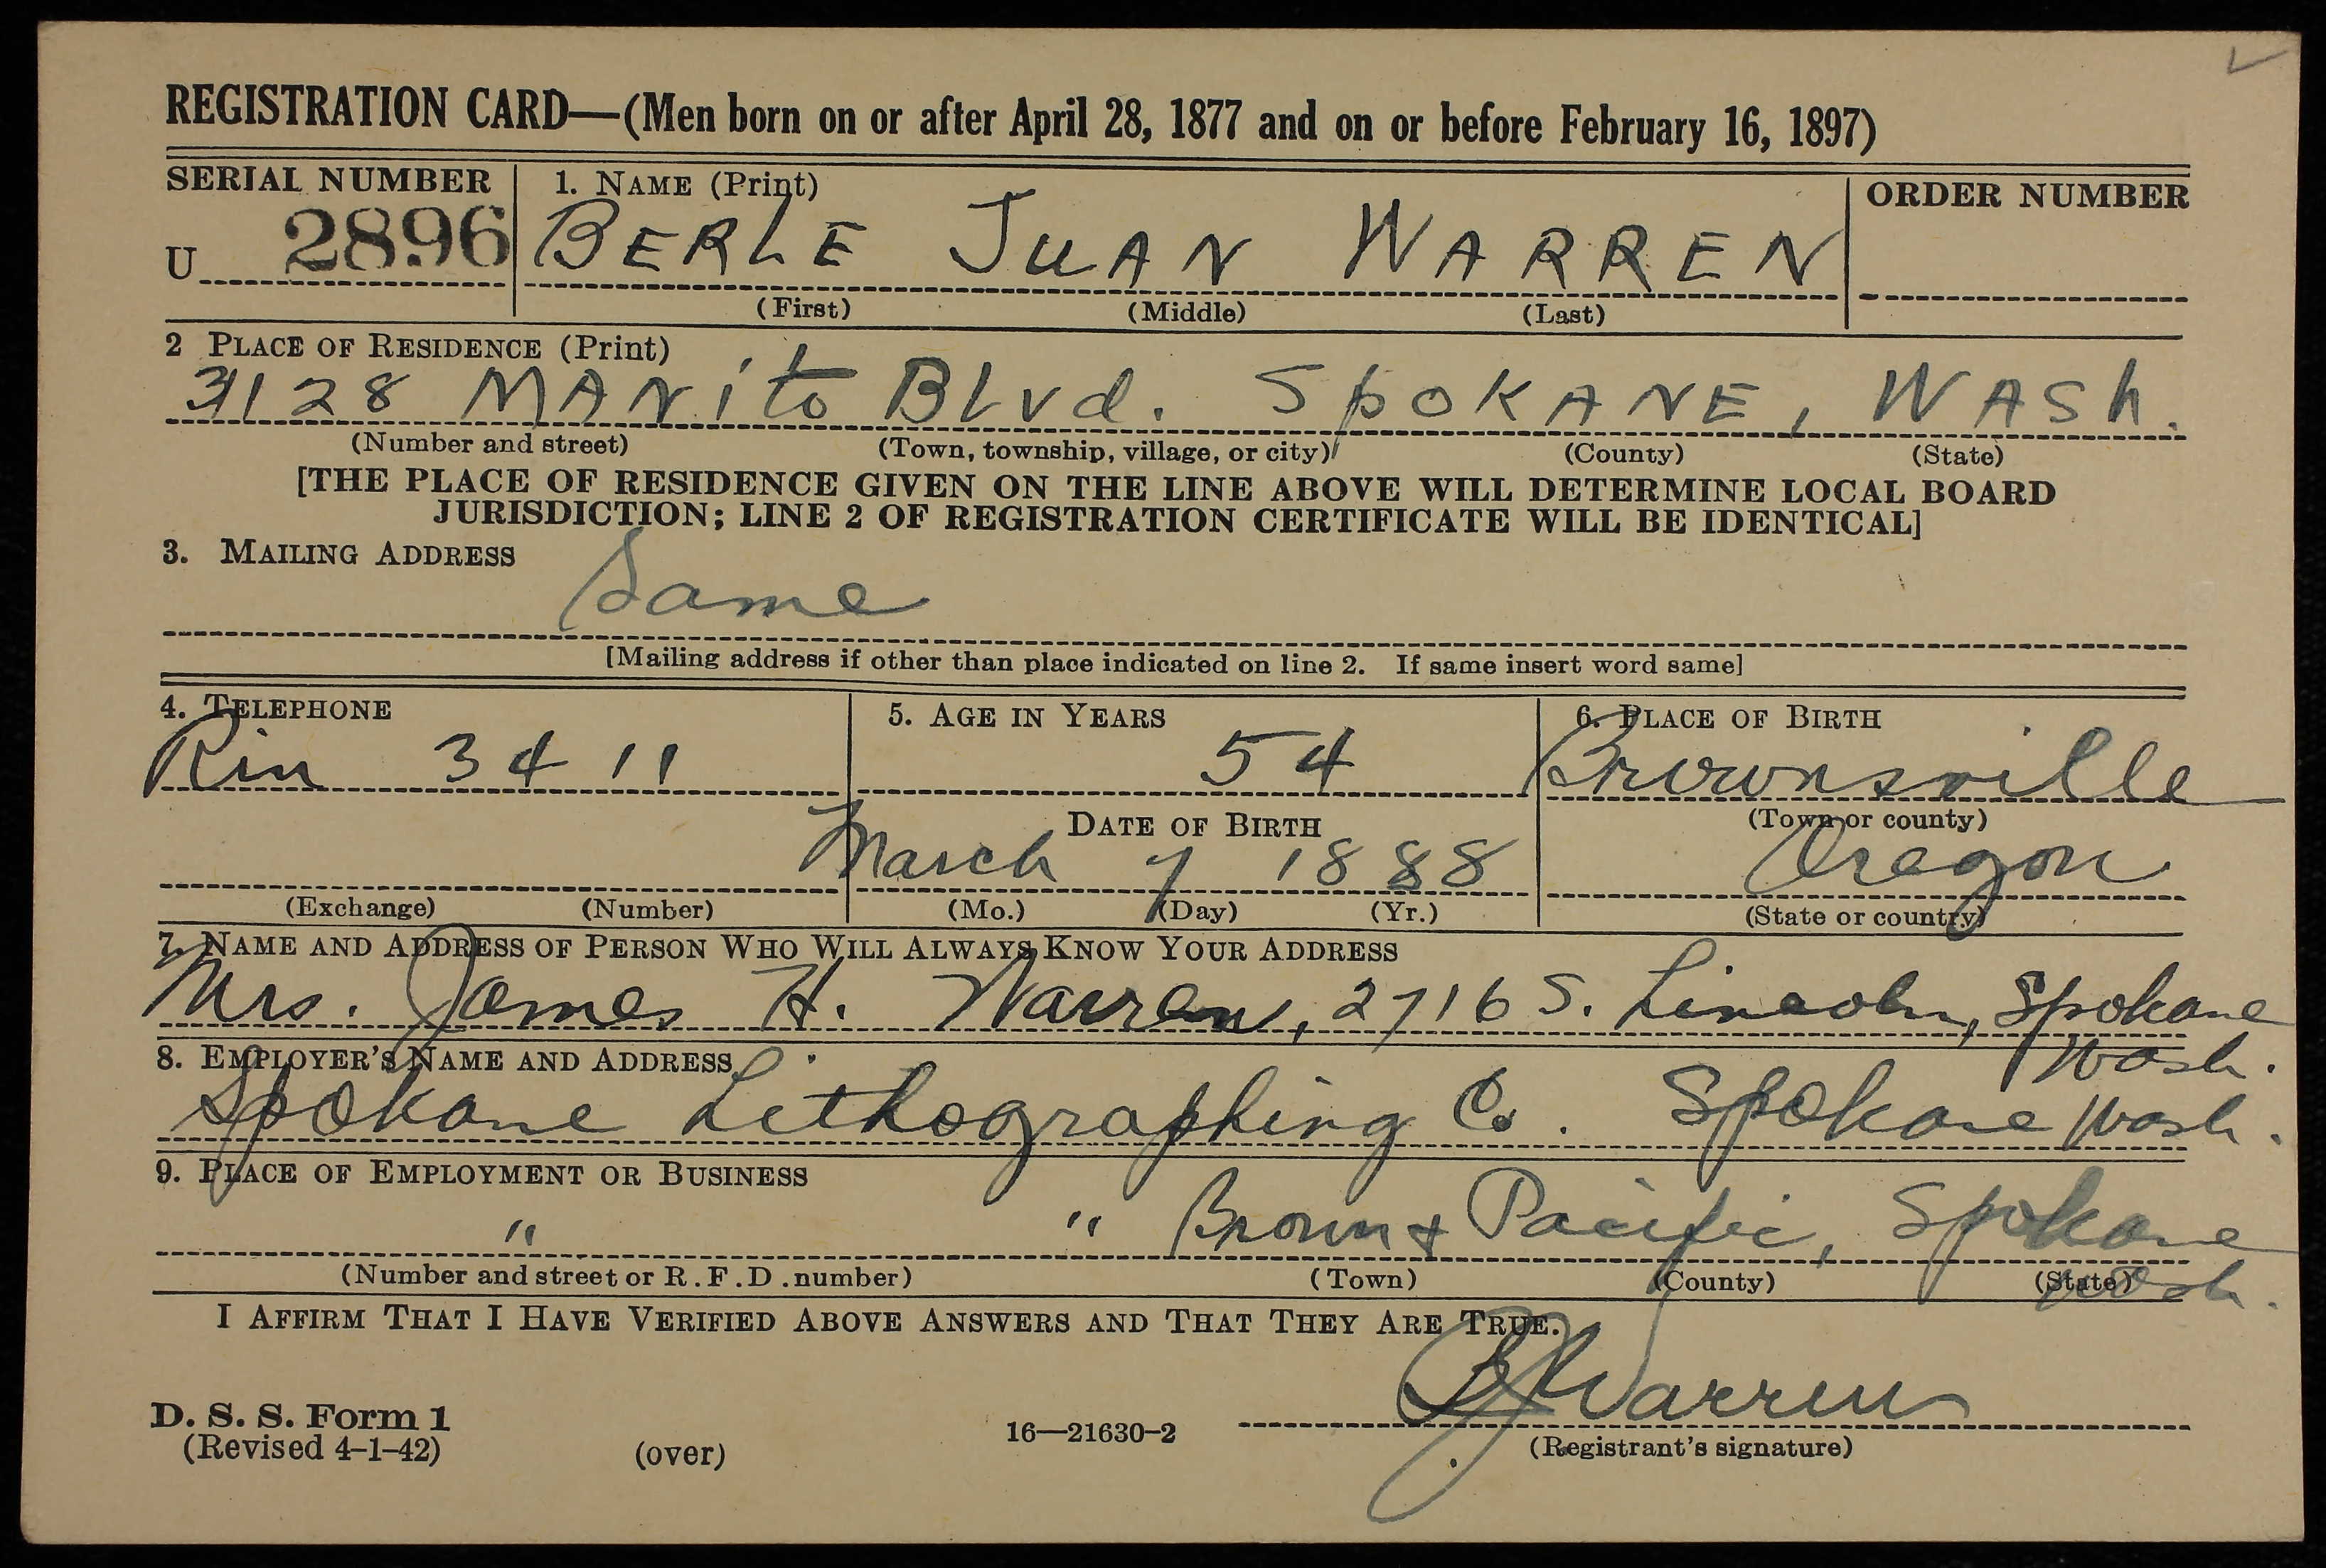 REGISTRATION CARD—(Men born on or after April 28, 1877 and on or before February 16, 1897)
SERIAL NUMBER
1. NAME (Print)
ORDER NUMBER
U 2896
BERLE JUAN WARREN
(First) (Middle) (Last)
2 PLACE OF RESIDENCE (Print)
3128 MANito BLvd. SpOKANE, WASh.
(Number and street) (Town, township, village, or city) (County) (State)
[THE PLACE OF RESIDENCE GIVEN ON THE LINE ABOVE WILL DETERMINE LOCAL BOARD
JURISDICTION; LINE 2 OF REGISTRATION CERTIFICATE WILL BE IDENTICAL]
3. MAILING ADDRESS
Same
[Mailing address if other than place indicated on line 2. If same insert word same]
4. TELEPHONE
5. AGE IN YEARS
6. PLACE OF BIRTH
Riv 3411
54
Brownsville
(Town or county)
DATE OF BIRTH
March 7 1888
Oregon
(Exchange) (Number)
(Mo.) (Day) (Yr.)
(State or country)
7. NAME AND ADDRESS OF PERSON WHO WILL ALWAYS KNOW YOUR ADDRESS
Mrs. James H. Warren, 2716 S. Lincoln, Spokane
Wash.
8. EMPLOYER'S NAME AND ADDRESS
Spokane Lithographing Co. Spokane Wash.
9. PLACE OF EMPLOYMENT OR BUSINESS
" " Brown + Pacific, Spokane
Wash.
(Number and street or R.F.D. number) (Town) (County) (State)
I AFFIRM THAT I HAVE VERIFIED ABOVE ANSWERS AND THAT THEY ARE TRUE.
BJWarren
D. S. S. Form 1
(Revised 4-1-42)
(over)
16—21630-2
(Registrant's signature)